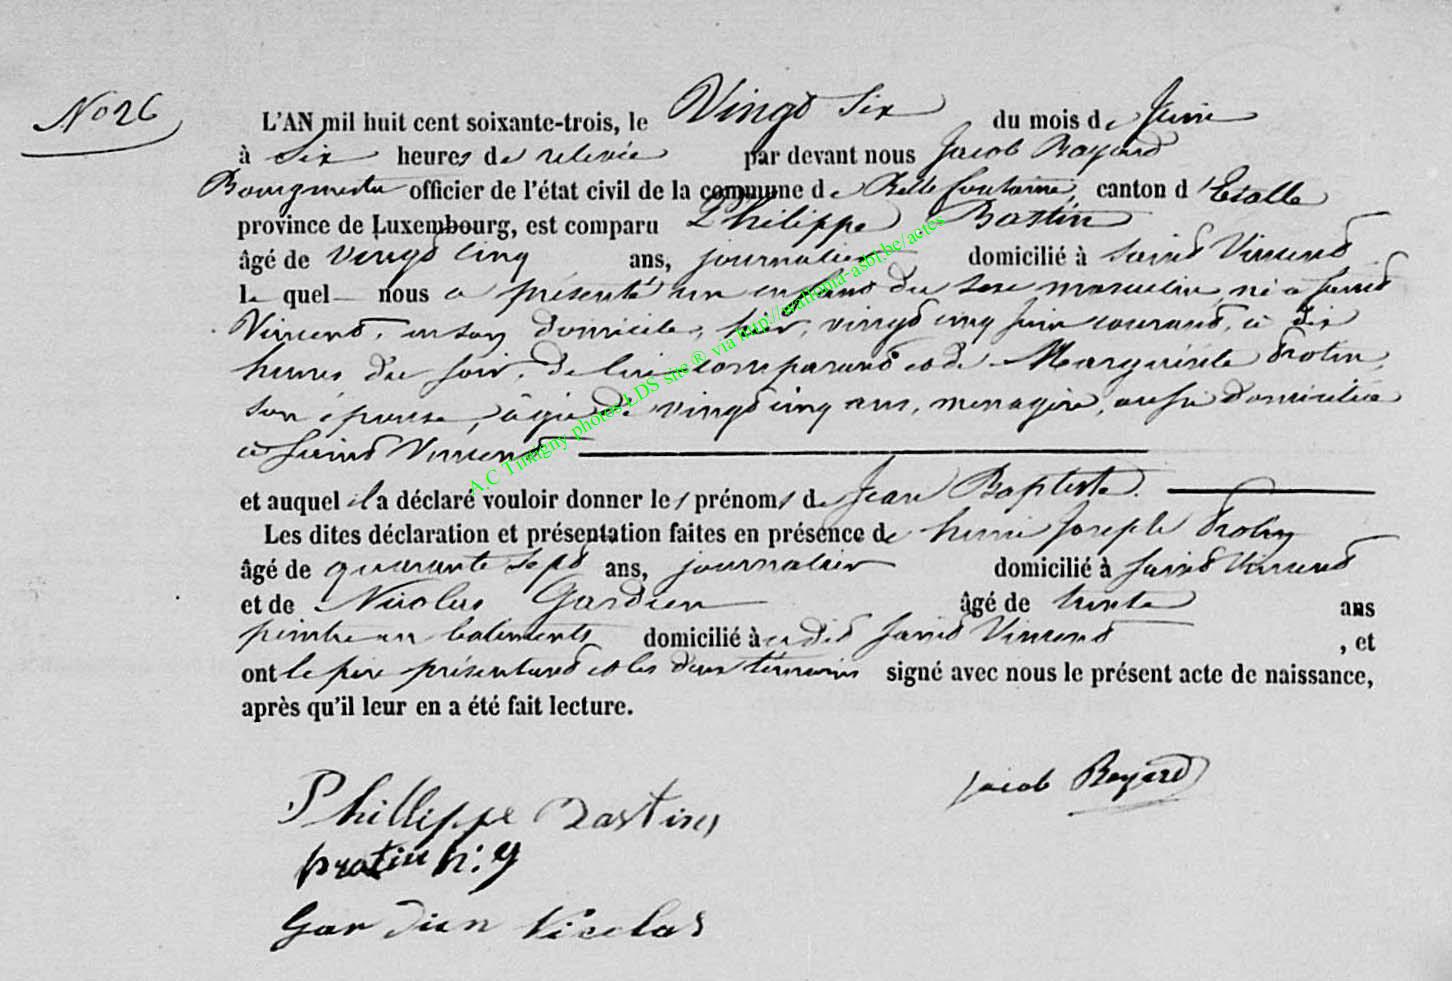 No 26
L'AN mil huit cent soixante-trois, le Vingt Six du mois de Juin
à Six heures de relevée par devant nous Jacob Bayard
Bourgmestre officier de l'état civil de la commune de Bellefontaine, canton d'Etalle
province de Luxembourg, est comparu Philippe Bastin
âgé de vingt cinq ans, journalier domicilié à Saint Vincent
lequel nous a présenté un enfant du sexe masculin, né à Saint
Vincent, en son domicile, hier, vingt cinq Juin courant, à dix
heures du soir, de lui comparant et de Marguerite Protin,
son épouse, âgée de vingt cinq ans, menagère, aussi domiciliée
à Saint Vincent
et auquel il a déclaré vouloir donner les prénoms de Jean Baptiste.
Les dites déclaration et présentation faites en présence de henri Joseph Protin
âgé de quarante sept ans, journalier domicilié à Saint Vincent
et de Nicolas Gardien âgé de trente ans
peintre en batiments domicilié à udit Saint Vincent, et
ont le père présentant et les deux témoins signé avec nous le présent acte de naissance,
après qu'il leur en a été fait lecture.
Jacob Bayard
Phillippe Bastin
protin h. y
Gardien Nicolas
A.C Tintigny photos LDS site ® via http://wallonia-asbl.be/actes